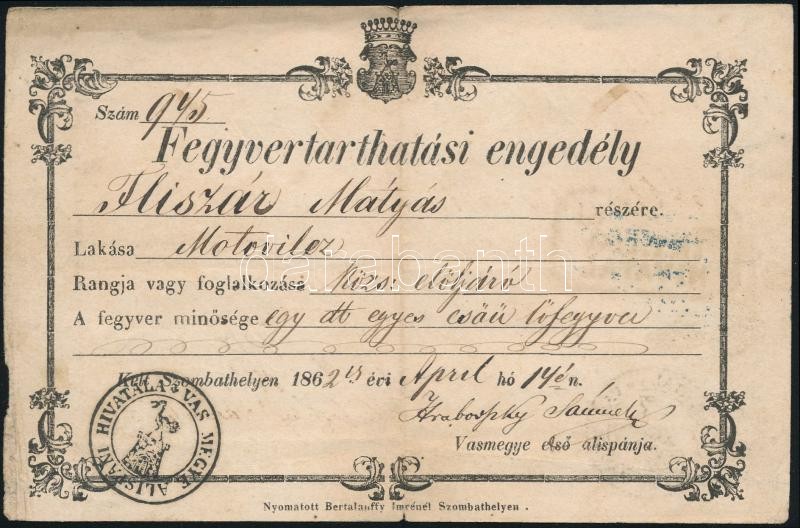 Szám 945
Fegyvertarthatási engedély
Fliszár Mátyás részére.
Lakása Motovilcz
Rangja vagy foglalkozása közs: elöljáró
A fegyver minősége egy db egyes csőű lőfegyver
Kelt Szombathelyen 1862 évi April hó 14én.
Hrabovszky Sámuel
Vasmegye első alispánja.
VAS MEGYE ALISPÁNI HIVATALA
Nyomatott Bertalanffy Imrénél Szombathelyen.
darabanth